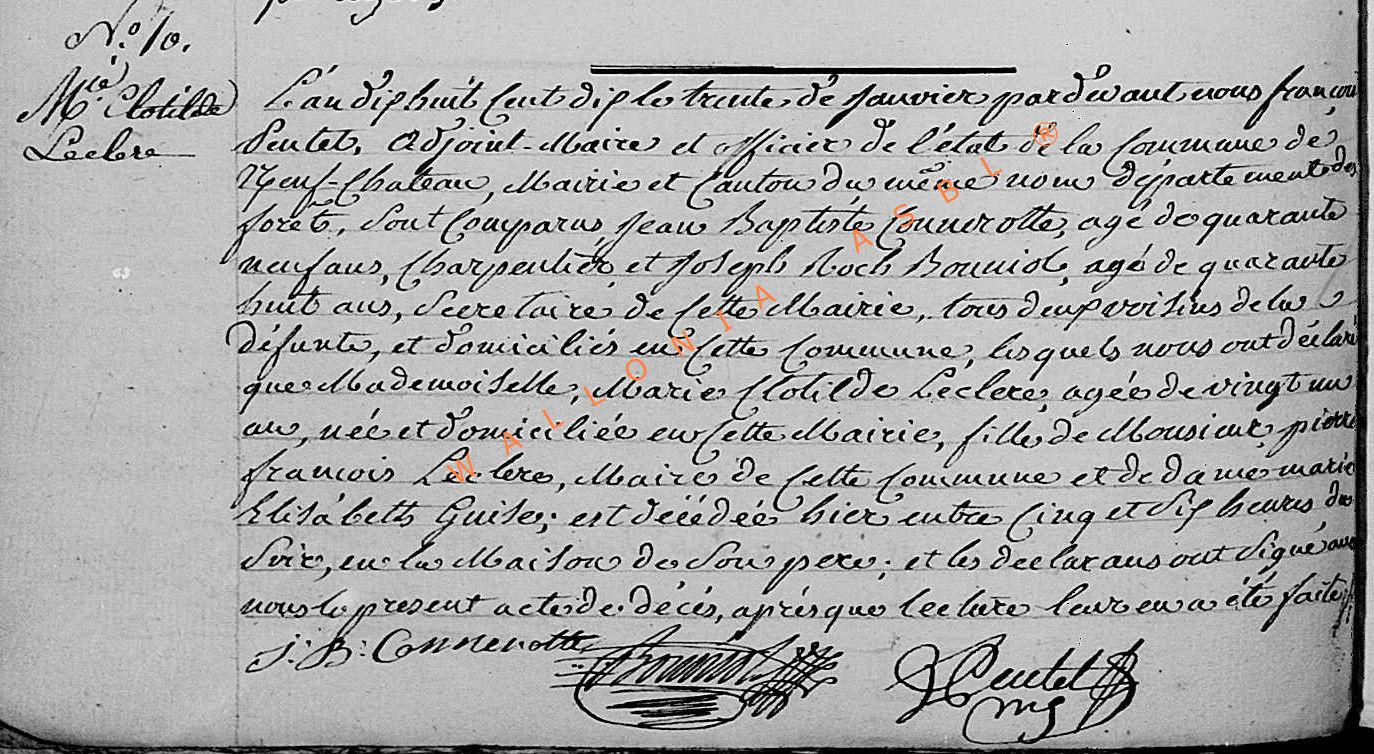 N.° 10.
M.ie Clotilde
Leclere
L'an dix huit Cent dix le trente de Janvier pardevant nous françois
Pentet, Adjoint-Maire et officier de l'état de la Commune de
Neuf-Chateau, Mairie et Canton du même nom département des
forêts, sont Comparus, Jean Baptiste Connerotte, agé de quarante
neuf ans, Charpentier et Joseph Roch Bouniol, agé de quarante
huit ans, Secretaire de Cette Mairie, tous deux voisins de la
défunte, et domiciliés en Cette Commune, lesquels nous ont déclaré
que Mademoiselle, Marie Clotilde Leclere, agée de vingt un
an, née et domiciliée en Cette Mairie, fille de Monsieur pierre
françois Leclere, Maire de Cette Commune et de dame marie
Elisabeth Guise; est décédée hier entre Cinq et Six heures du
Soir, en la Maison de Son pere; et les declarans ont Signé avec
nous le present acte de décés, aprés que lecture leur en a été faite
J: B: Connerotte
Bouniol
Pentet
WALLONIA ASBL ®